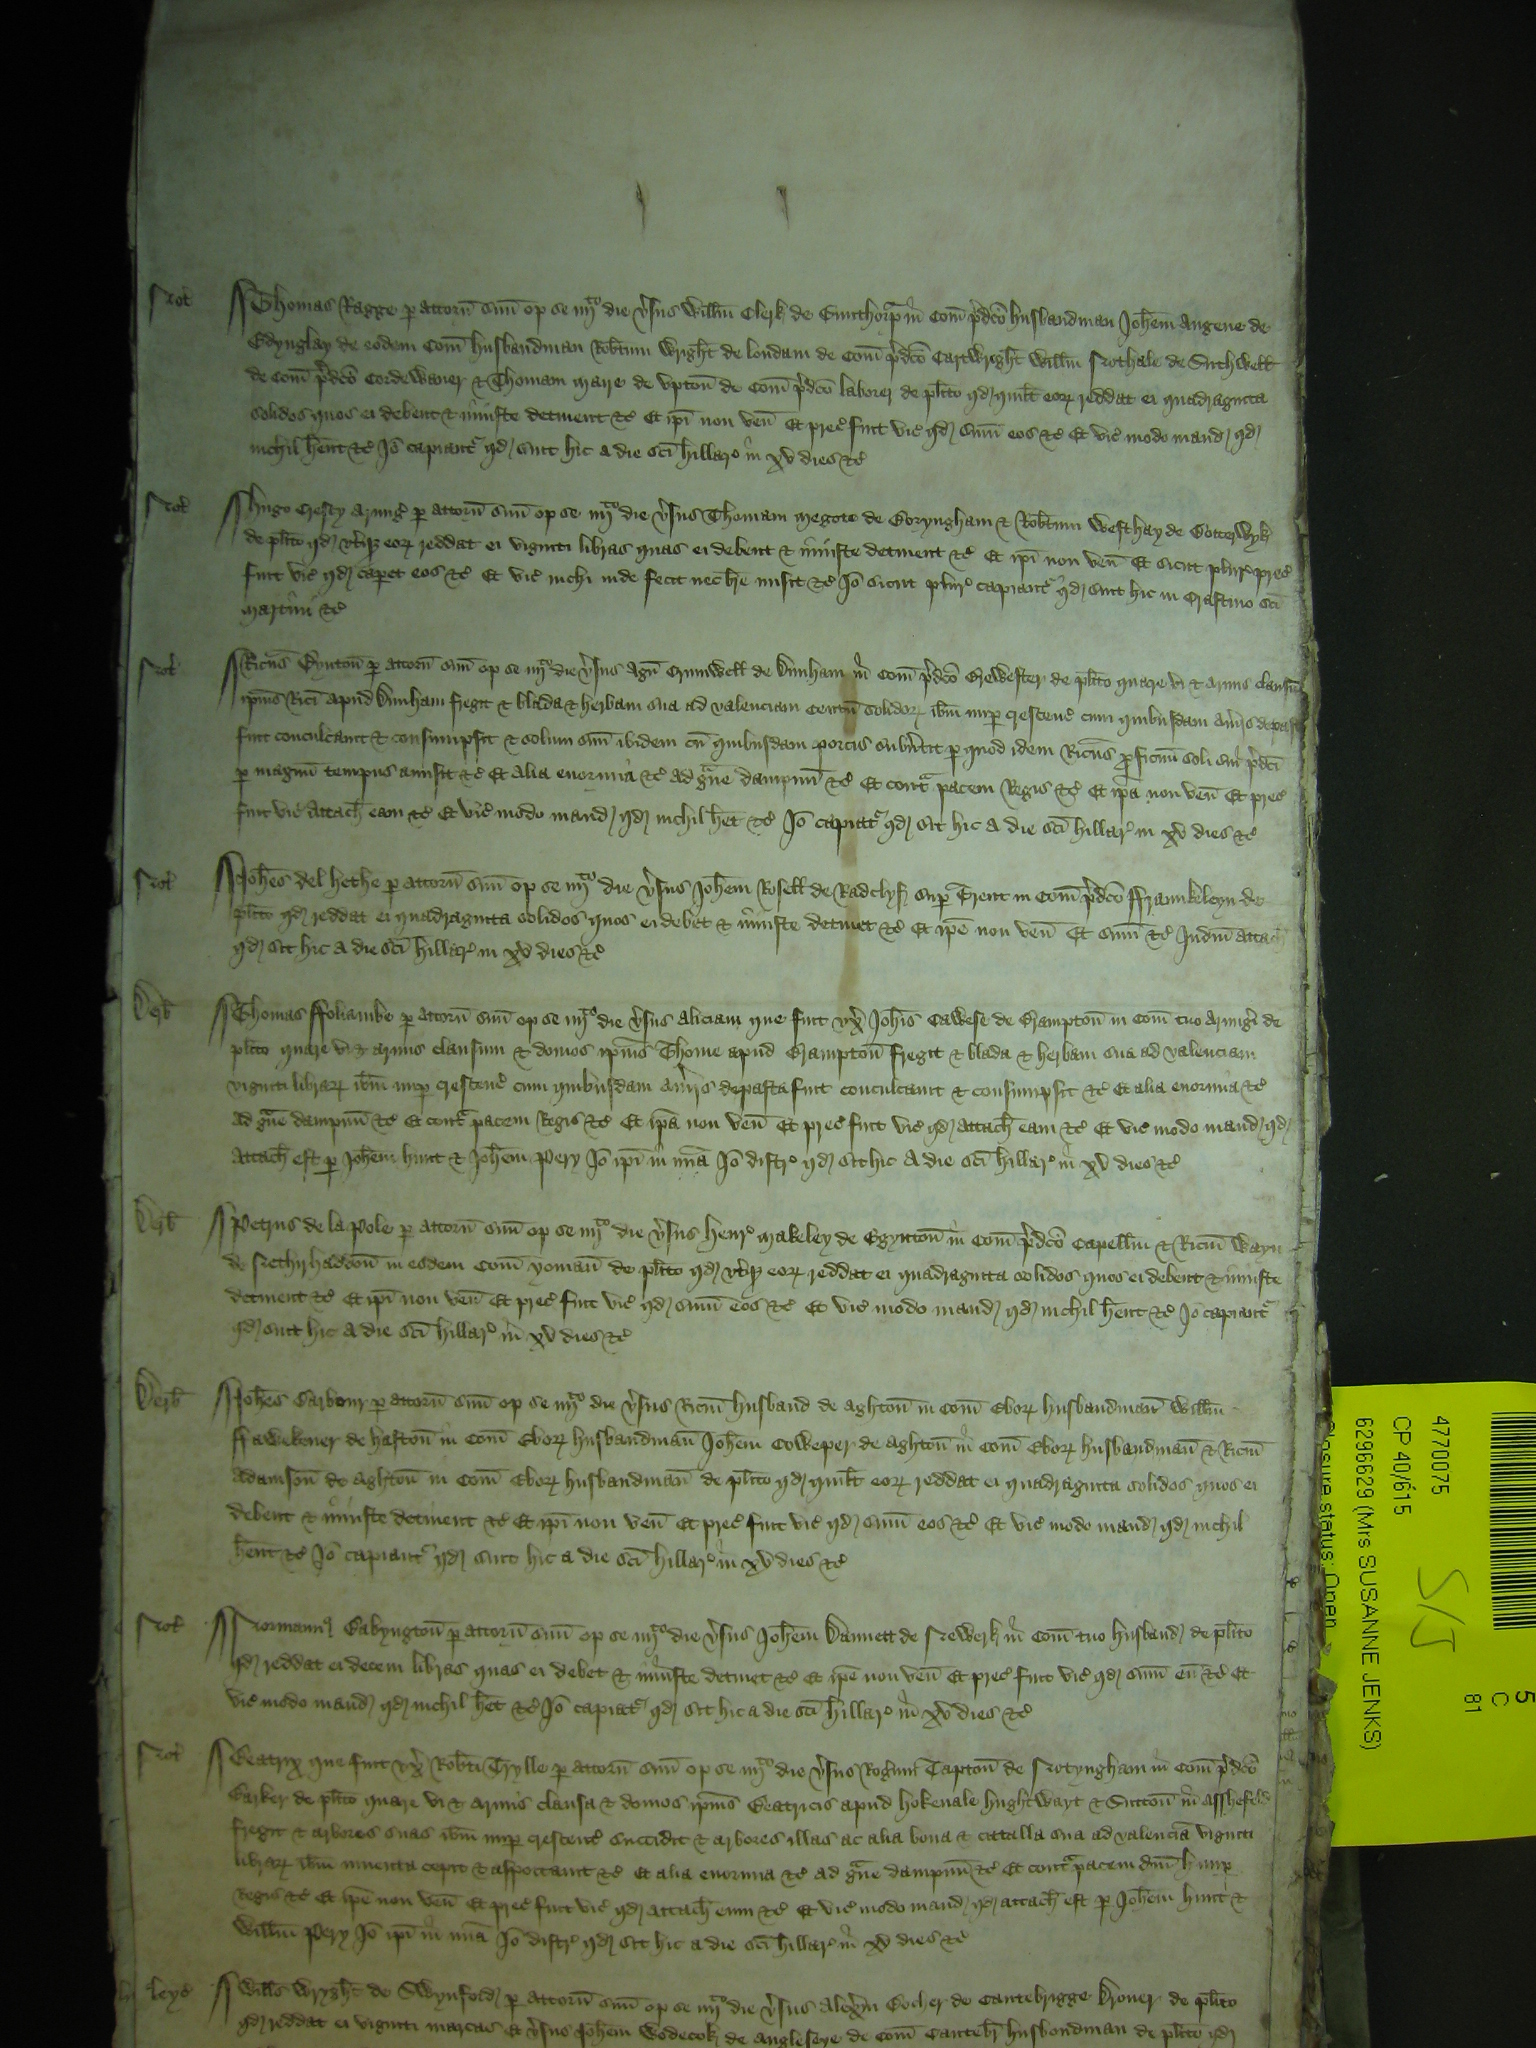 Not Thomas Ragge p attorn suu op se iiijto die vsus Willm Clerk de Gunthorp in Com pdco husbandman Johem Angeue de
Edynglay de eodem Com husbandman Robtum Wright de londam de Com pdco Cartwreght Willm Nothale de Suthwell
de Com pdco Cordewaner & Thomam Maire de Upton de Com pdco laborer de plito qd quilt eor reddat ei quadraginta
solidos quos ei debent & iniuste detinent &c Et ipi non ven Et prec fuit vic qd sum eos &c Et vic modo mand qd
nichil hent &c Jo capiantr qd sint hic a die sci hillar in xv dies &c
Not Hugo Cressy Armig p attorn suu op se iiijto die vsus Thomam Megote de Goryngham & Robtum Westhay de Cotterwyk
de plito qd utq eor reddat ei viginti libras quas ei debent & iniuste detinent &c Et ipi non ven Et sicut plur prec
fuit vic qd caperet eos &c Et vic nichi inde fecit nec bre misit &c Jo sicut plur capiantr qd sint hic in Crastino sci
Martini &c
Not Ricus Bynton p attorn suu op se iiijto die vsus Agn Crumwell de Dunham in Com pdco Brewester de plito quare vi & armis clausu
ipius Rici apud Dunham fregit & blada & herbam sua ad valenciam Centu solidor ibm nup crescenc cum quibusdam aviis depasta
fuit conculcauit & consumpsit & solum suu ibidem cu quibusdam porcis subvertit p quod idem Ricus pficuu soli sui pdci
p magnu tempus amisit &c Et alia enormia &c ad gue dampnu &c Et contra pacem Regis &c Et ipa non ven Et prec
fuit vic Attach eam &c Et vic modo mand qd nichil het &c Jo capiatr qd sit hic a die sci hillar in xv dies &c
Not Johes del hethe p attorn suu op se iiijto die vsus Johem Rosell de Radclyf sup Trent in Com pdco ffraunkeleyn de
plito qd reddat ei quadraginta solidos quos ei debet & iniuste detinet &c Et ipe non ven Et sum &c Judm attach
qd sit hic a die sci hillar in xv dies &c
Derb Thomas ffoliambe p attorn suu op se iiijto die vsus Aliciam que fuit ux Johis Cawese de Brampton in Com tuo Armigi de
plito quare vi & armis clausum & domos ipius Thome apud Brampton fregit & blada & herbam sua ad valenciam
viginti librar ibm nup crescenc cum quibusdam aviis depasta fuit conculcauit & consumpsit &c Et alia enormia &c
ad gue dampnu &c Et contra pacem Regis &c Et ipa non ven Et prec fuit vic qd attach eam &c Et vic modo mand qd
Attach est p Johem hunt & Johem Pery Jo ipi in mia Jo distr qd sit hic A die sci hillar in xv dies &c
Derb Petrus de la Pole p attorn suu op se iiijto die vsus henr Makeley de Egynton in Com pdco Capellm & Ricm Wayn
de Nethirhaddon in eodem Com yoman de plito qd utq eor reddat ei quadraginta solidos quos ei debent & iniuste
detinent &c Et ipi non ven Et prec fuit vic qd sum eos &c Et vic modo mand qd nichil hent &c Jo capiantr
qd sint hic a die sci hillar in xv dies &c
Derb Johes Barbour p attorn suu op se iiijto die vsus Ricm husband de Aghton in Com Ebor husbandman Willm
ffawkoner de hafton in Com Ebor husbandman Johem Cowper de Aghton in Com Ebor husbandman & Ricm
Adamson de Aghton in Com Ebor husbandman de plito qd quilt eor reddat ei quadraginta solidos quos ei
debent & iniuste detinent &c Et ipi non ven Et prec fuit vic qd sum eos &c Et vic modo mand qd nichil
hent &c Jo capiantr qd sint hic a die sci hillar in xv dies &c
Not Normann Babyngton p attorn suu op se iiijto die vsus Johem Dannett de Newerk in Com tuo husband de plito
qd reddat ei decem libras quas ei debet & iniuste detinet &c Et ipe non ven Et prec fuit vic qd sum eu &c Et
vic modo mand qd nichil het &c Jo capiatr qd sit hic a die sci hillar in xv dies &c
Not Beatrix que fuit ux Robti Trylle p attorn suu op se iiijto die vsus Rogum Tapton de Notyngham in Com pdco
Barker de plito quare vi & armis clausa & domos ipius Beatricis apud hokenale hughtwayt & Sutton in Asshefeld
fregit & arbores suas ibm nup crescent succidit & arbores illas ac alia bona & catalla sua ad valencia viginti
librar ibm inuenta cepit & asportauit &c Et alia enormia &c ad gue dampnu &c Et contra pacem dni h nup
Regis &c Et ipe non ven Et prec fuit vic qd attach eum &c Et vic modo mand qd attach est p Johem hunt &
Willm Pery Jo ipi in mia Jo distr qd sit hic a die sci hillar in xv dies &c
leyc Wills Wryght de Swynford p attorn suu op se iiijto die vsus Alexm Gocher de Cantebrigge Drouer de plito
qd reddat ei viginti marcas Et vsus Johem Wodecok de Angleseye de Com Cantebr husbondman de plito qd
4770075
CP 40/615
6296629 (Mrs SUSANNE JENKS)
Closure status: Open
S/J
5
C
81